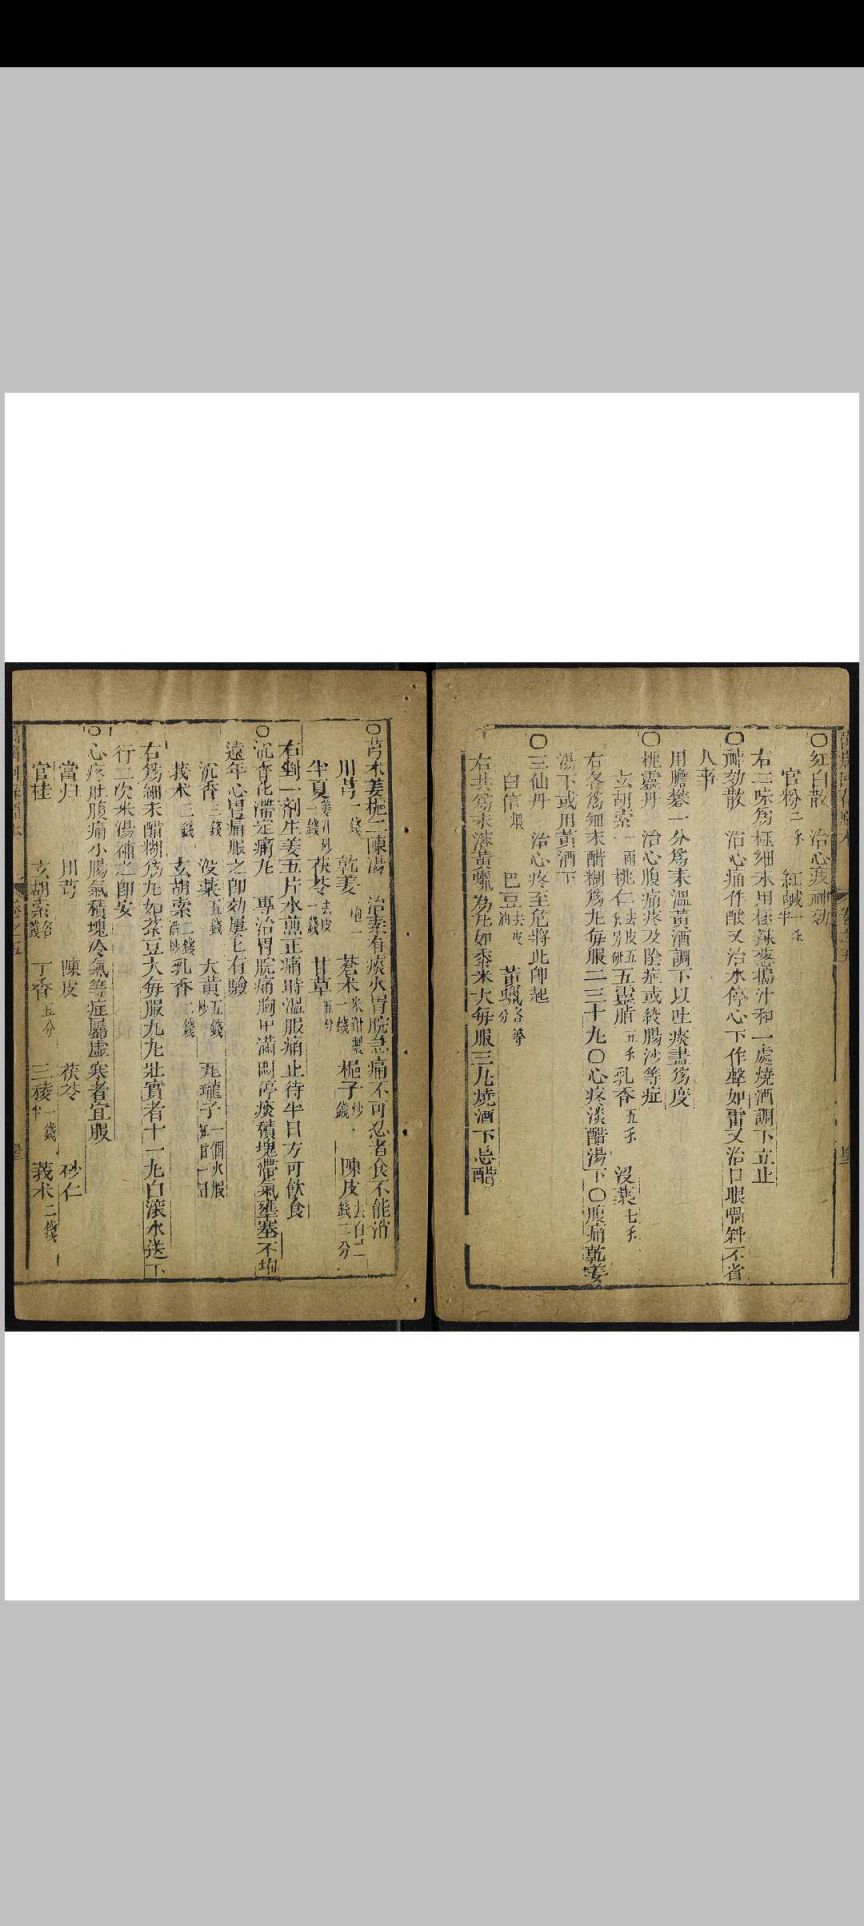 〇紅白散　治心疼神効
官粉二  紅鹹一半
右二味為極細末用極辣葱搗汁和一處燒酒調下立止
〇神効散　治心痛作酸又治水停心下作聲如雷又治口眼喎斜不省
人事
用膽礬一分為末溫黃酒調下以吐痰盡為度
〇桃靈丹　治心腹痛疼及陰症或絞腸沙等症
玄胡索一兩 桃仁去皮五 別研 五靈脂五 乳香五 沒藥七
右各為細末醋糊為丸每服二三十丸〇心疼淡醋湯下〇腹痛乾姜
湯下或用黃酒下
〇三仙丹　治心疼至危將此即起
白信煨　巴豆去皮油　黃蠟各等分
右共為末溶黃蠟為丸如黍米大每服三丸燒酒下忌醋
〇芎朮姜梔二陳湯　治素有痰火胃脘急痛不可忍者食不能消
川芎一錢　乾姜炮一　蒼朮米泔製一錢　梔子炒 錢　陳皮去白 錢二分
半夏姜汁炒一錢　茯苓去皮一錢　甘草五分
右剉一剂生姜五片水煎正痛時溫服痛止待半日方可飲食
〇沉香化滯定痛丸　專治胃脘痛胸中滿悶停痰積塊滯氣壅塞不拘
遠年心胃痛服之即効屢屢有驗
沉香三錢　沒藥五錢　大黃五錢炒　瓦壠子一個火煅
莪朮三錢　玄胡索三錢酒炒　乳香三錢
右為細末醋糊為丸如菉豆大每服九丸壯實者十一丸白滚水送下
行二次米湯補之即安
〇心疼肚腹痛小腸氣積塊冷氣等症屬虛寒者宜服
當归　川芎　陳皮　茯苓　砂仁
官桂　玄胡索各 錢　丁香五分　三稜一錢半　莪朮二錢